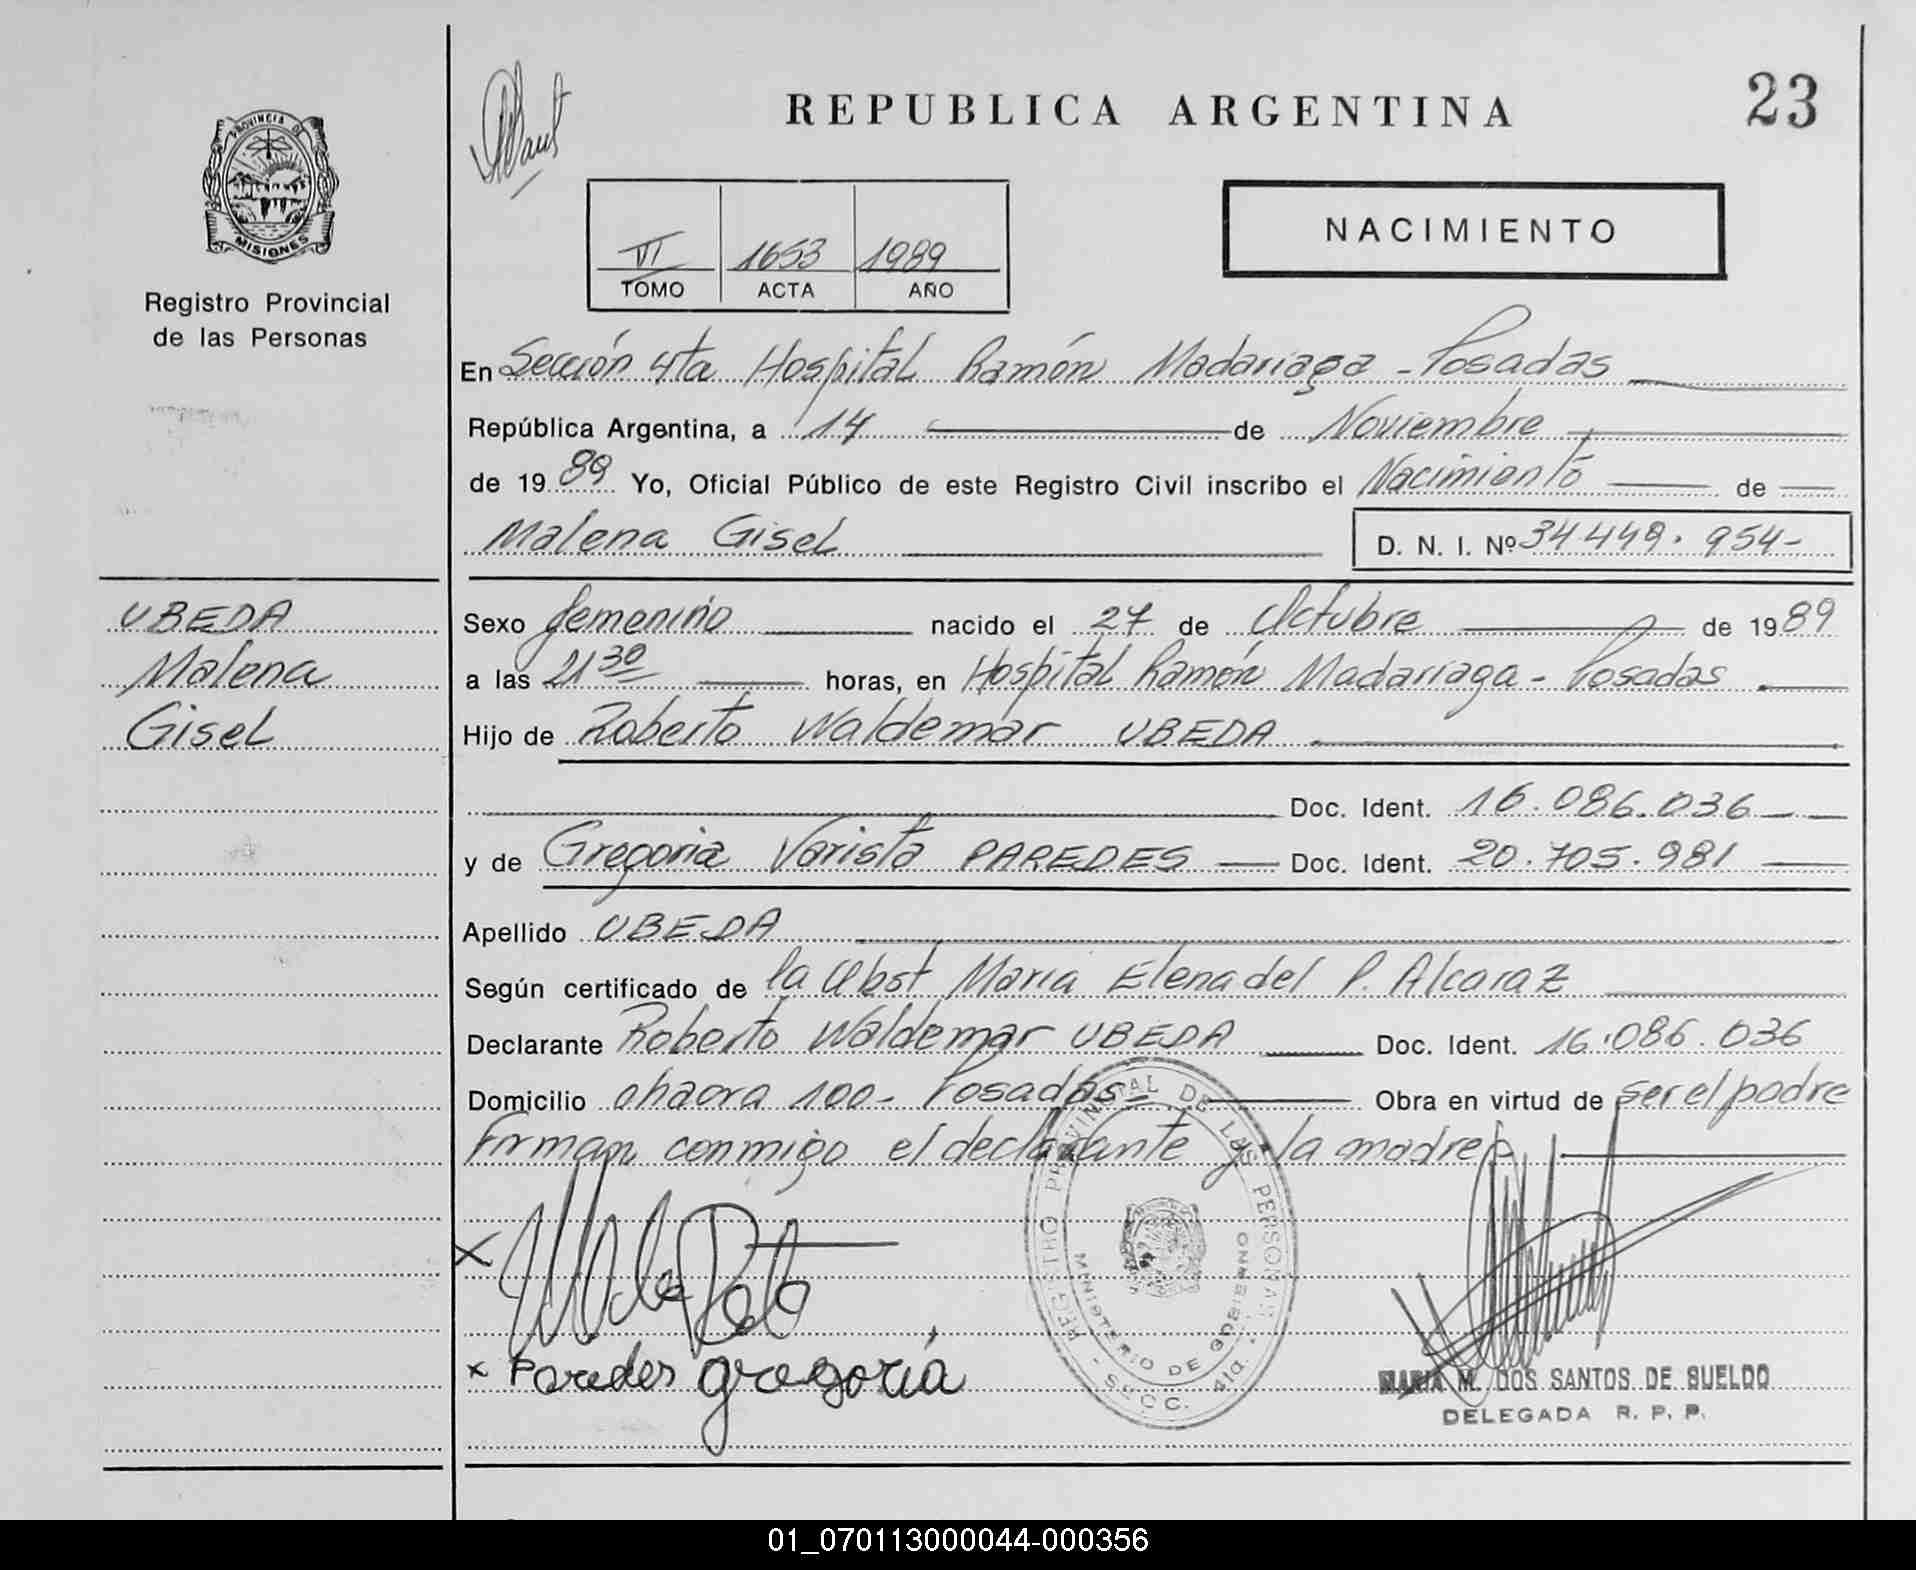 REPUBLICA ARGENTINA
23
PROVINCIA DE
MISIONES
Registro Provincial
de las Personas
VI 1653 1989
TOMO ACTA AÑO
NACIMIENTO
En Sección 4ta Hospital Ramón Madariaga - Posadas
República Argentina, a 14 de Noviembre
de 1989 Yo, Oficial Público de este Registro Civil inscribo el Nacimiento de
Malena Gisel D. N. I. Nº 34.449.954-
UBEDA
Malena
Gisel
Sexo femenino nacido el 27 de Octubre de 1989
a las 21 30 horas, en Hospital Ramón Madariaga - Posadas
Hijo de Roberto Waldemar UBEDA
Doc. Ident. 16.086.036
y de Gregoria Varista PAREDES Doc. Ident. 20.705.981
Apellido UBEDA
Según certificado de la Obst Maria Elena del P. Alcaraz
Declarante Roberto Waldemar UBEDA Doc. Ident. 16.086.036
Domicilio chacra 100- Posadas Obra en virtud de ser el padre
Firman conmigo el declarante y la madre
REGISTRO PROVINCIAL DE LAS PERSONAS
MINISTERIO DE GOBIERNO
- SECC. 4ta. -
x
x Paredes gregoria
MARIA M. DOS SANTOS DE SUELDO
DELEGADA R. P. P.
01_070113000044-000356